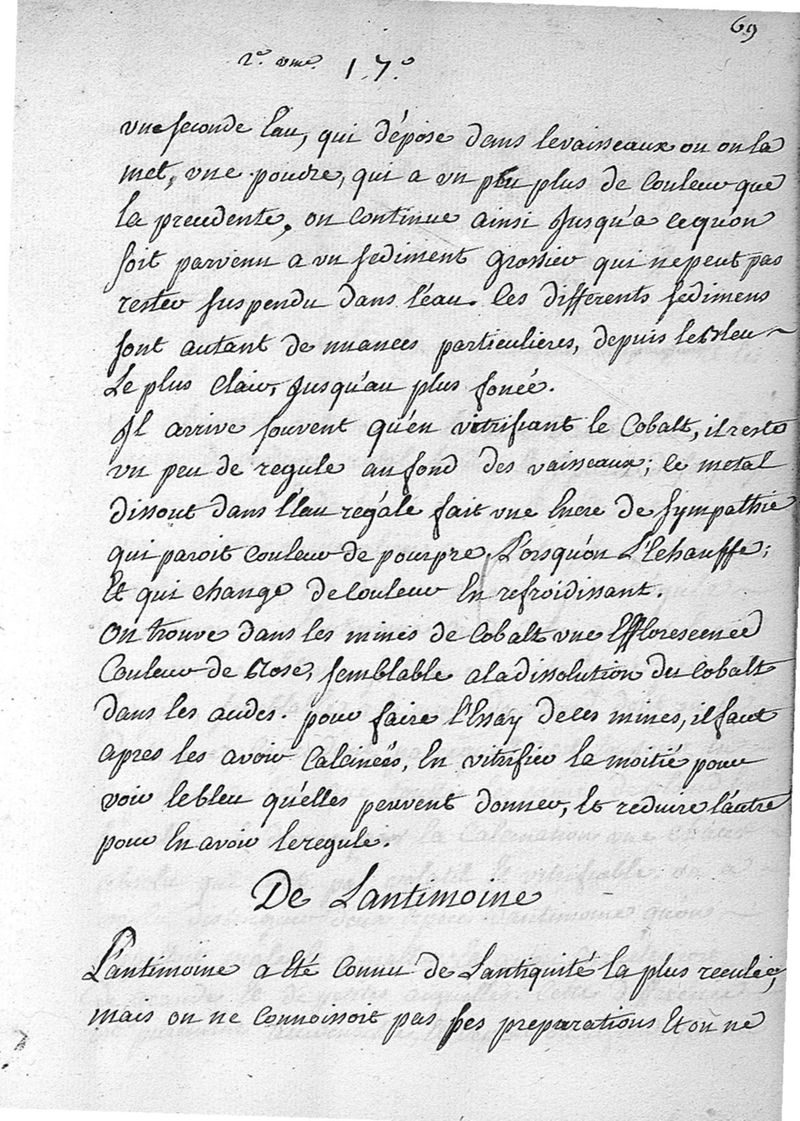 69
2.e vme. 17.º
vne seconde Eau, qui dépose dans le vaisseaux ou on la
met, vne poudre, qui a vn peu plus de Couleur que
la precedente, on continue ainsi Jusqu'a ce qu'on
soit parvenu a vn sediment grossier qui ne peut pas
rester suspendu dans l'éau. les différents sedimens
sont autant de nuances particulières, depuis le bleu
Le plus Clair, Jusqu'au plus foncé.
Jl arrive souvent qu'en vitrifiant le Cobalt, il reste
vn peu de regule au fond des vaisseaux; ce metal
dissout dans l'Eau regale fait vne Encre de Sympathie
qui paroit Couleur de pourpre Lorsqu'on L'Echauffe;
Et qui change de Couleur En refroidissant.
On trouve dans les mines de Cobalt vne Efflorescence
Couleur de Rose, semblable a la dissolution du Cobalt
dans les acides. pour faire l'Essay de ces mines, il faut
apres les avoir Calcinées, En vitrifier la moitié pour
voir le bleu qu'elles peuvent donner, Et reduire l'autre
pour En avoir le regule.
De Lantimoine
L'antimoine a Eté Connu de Lantiquité la plus reculée,
mais on ne Connoissoit pas ses preparations Et on ne